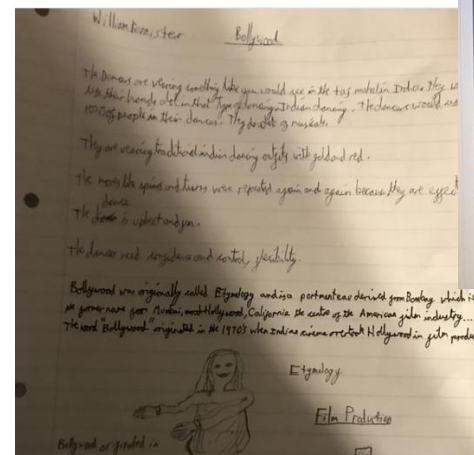 William Bannister
Bollywood
The Dancers are wearing something like you would see in the taj mahal in India. They
use their hands a lot in that type of dancing. Indian dancing. The dancers would
people in their dances. They do a lot of musicals.
They are wearing traditional indian dancing outfits with gold and red.
The moves like spins and turns were repeated again and again because they are
dance
The is upbeat and fun.
The dancers need confidence and control, flexibility.
Bollywood was originally called Etymology and is a portmanteau derived from Bombay which is
the former name for Mumbai, and Hollywood, California the centre of the American film industry...
The word "Bollywood" originated in the 1970's when Indian cinema overtook Hollywood in film
Etymology
Film Production
Bollywood originated in